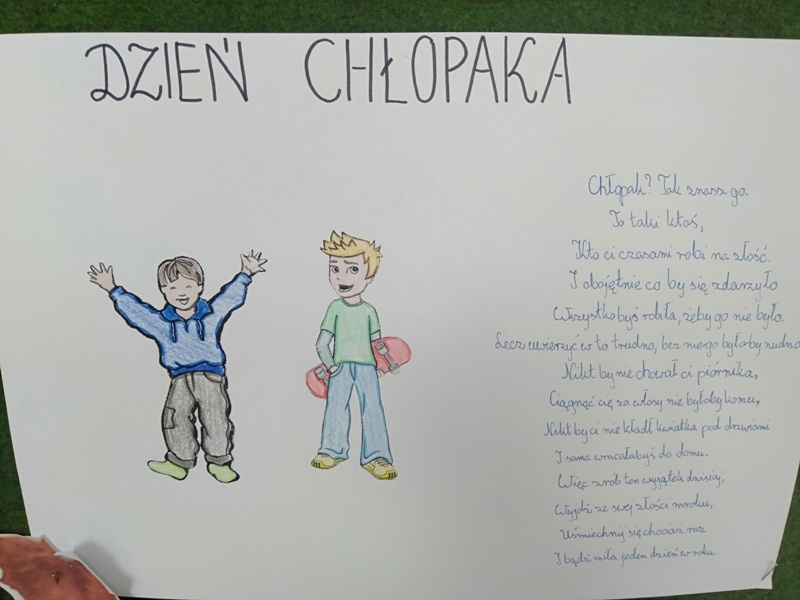 DZIEŃ CHŁOPAKA
Chłopak? Tak znasz go.
To taki ktoś,
Kto ci czasami robi na złość.
I obojętnie co by się zdarzyło
Wszystko byś robiła, żeby go nie było.
Lecz uwierzyć w to trudno, bez niego byłoby nudno
Nikt by nie chował ci piórnika,
Ciągnąć cię za włosy nie byłoby komu,
Nikt by ci nie kładł kwiatka pod drzwiami
I sama wracałabyś do domu.
Więc zrób ten wyjątek dzisiaj,
Wyjdź ze swej złości mroku,
Uśmiechnij się chociaż raz
I bądź miła jeden dzień w roku.